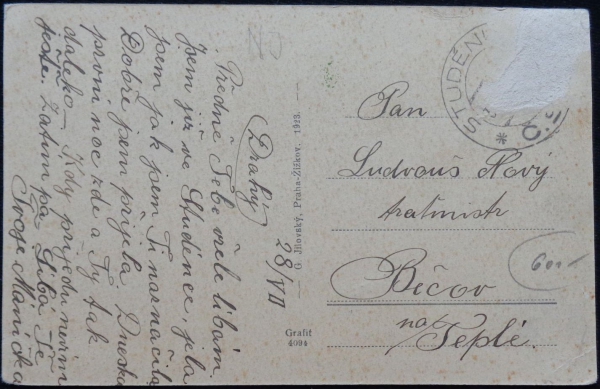 28/VII
Drahý
Předně Tebe vřele líbám.
Jsem již ve Studénce, jela
jsem jak jsem Ti naznačila
Dobře jsem přijela. Dneska
první noc zde a Ty tak
daleko. Kdy přijedu nevím
ještě. Zatím pá. Líbá Tě
Tvoje Mančka
G. Jilovský, Praha-Žižkov, 1923.
Grafit
4094
STUDÉN
Pan
Ludvouš Nový
tratmistr
Bečov
na Teplé.